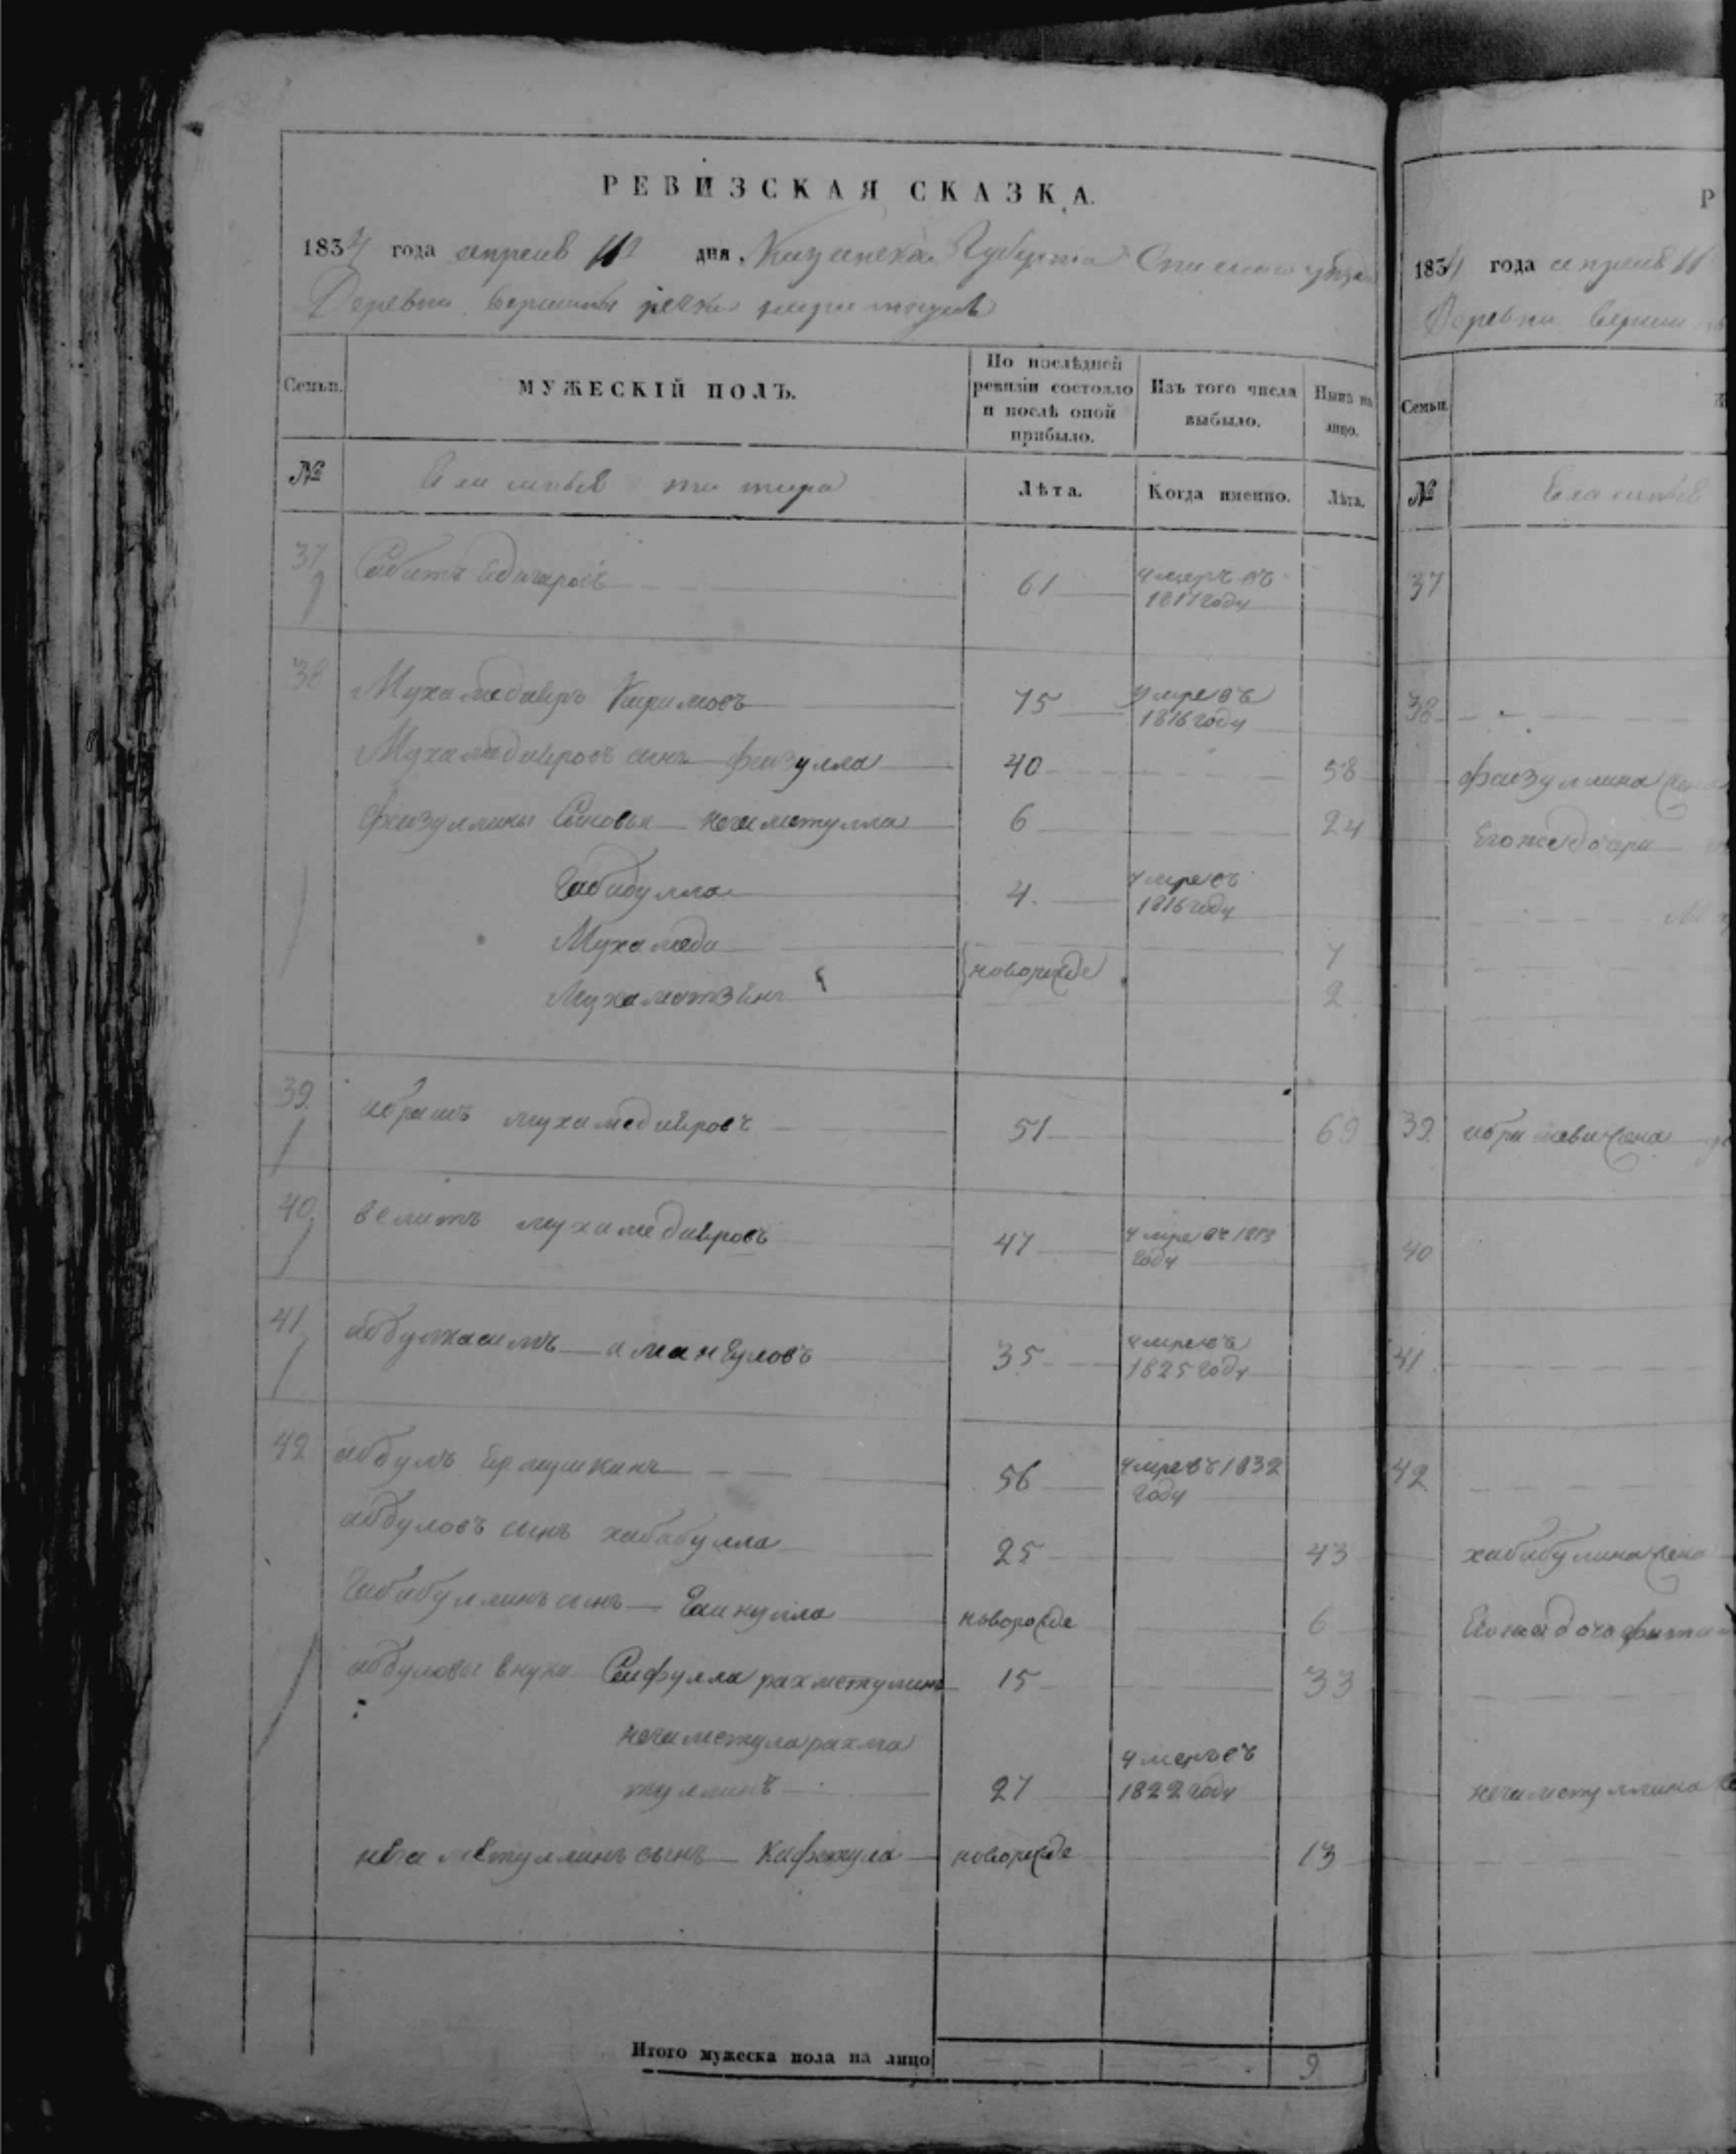 РЕВИЗСКАЯ СКАЗКА.
1834 года апреля 11 дня, Казанской Губернии Спаского уезда
Деревни вершины речки
Семьи.
МУЖЕСКІЙ ПОЛЪ.
По послѣдней ревизіи состояло и послѣ оной прибыло.
Изъ того числа выбыло.
Нынѣ на лицо.
№
Лѣта.
Когда именно.
Лѣта.
37
Сабитъ 61 умеръ въ
1817 году
38 Мухамедияръ Каримовъ 75 умре въ
1816 году
Мухамедияровъ сынъ Фаизулла 40 58
Фаизуллины Сыновья Негаметулла 6 24
Габидулла 4 умре въ
1816 году
Мухамеди новорожде 7
Мухаметзянъ 2
39 ибраимъ мухамедияровъ 51 69
40 велитъ мухамедияровъ 47 умре въ 1813
году
41 абулкаимъ амангуловъ 35 умре въ
1825 году
42 абдулъ Ермушкинъ 56 умре въ 1832
году
абдуловъ сынъ хабибулла 25 43
Габибуллинъ сынъ Гаинулла новорожде 6
абдуловы внуки Сайфулла рахметулинъ 15 33
негаметула рахма
туллинъ 27 умеръ въ
1822 году
негаметуллинъ сынъ новорожде 13
Итого мужеска пола на лицо 9
Р
1834 года апреля 11
Деревни верши
Семьи.
№
37
38
Фаизуллина жена
Его же дочери
39
40
41
42
хабибулина жена
негаметуллина